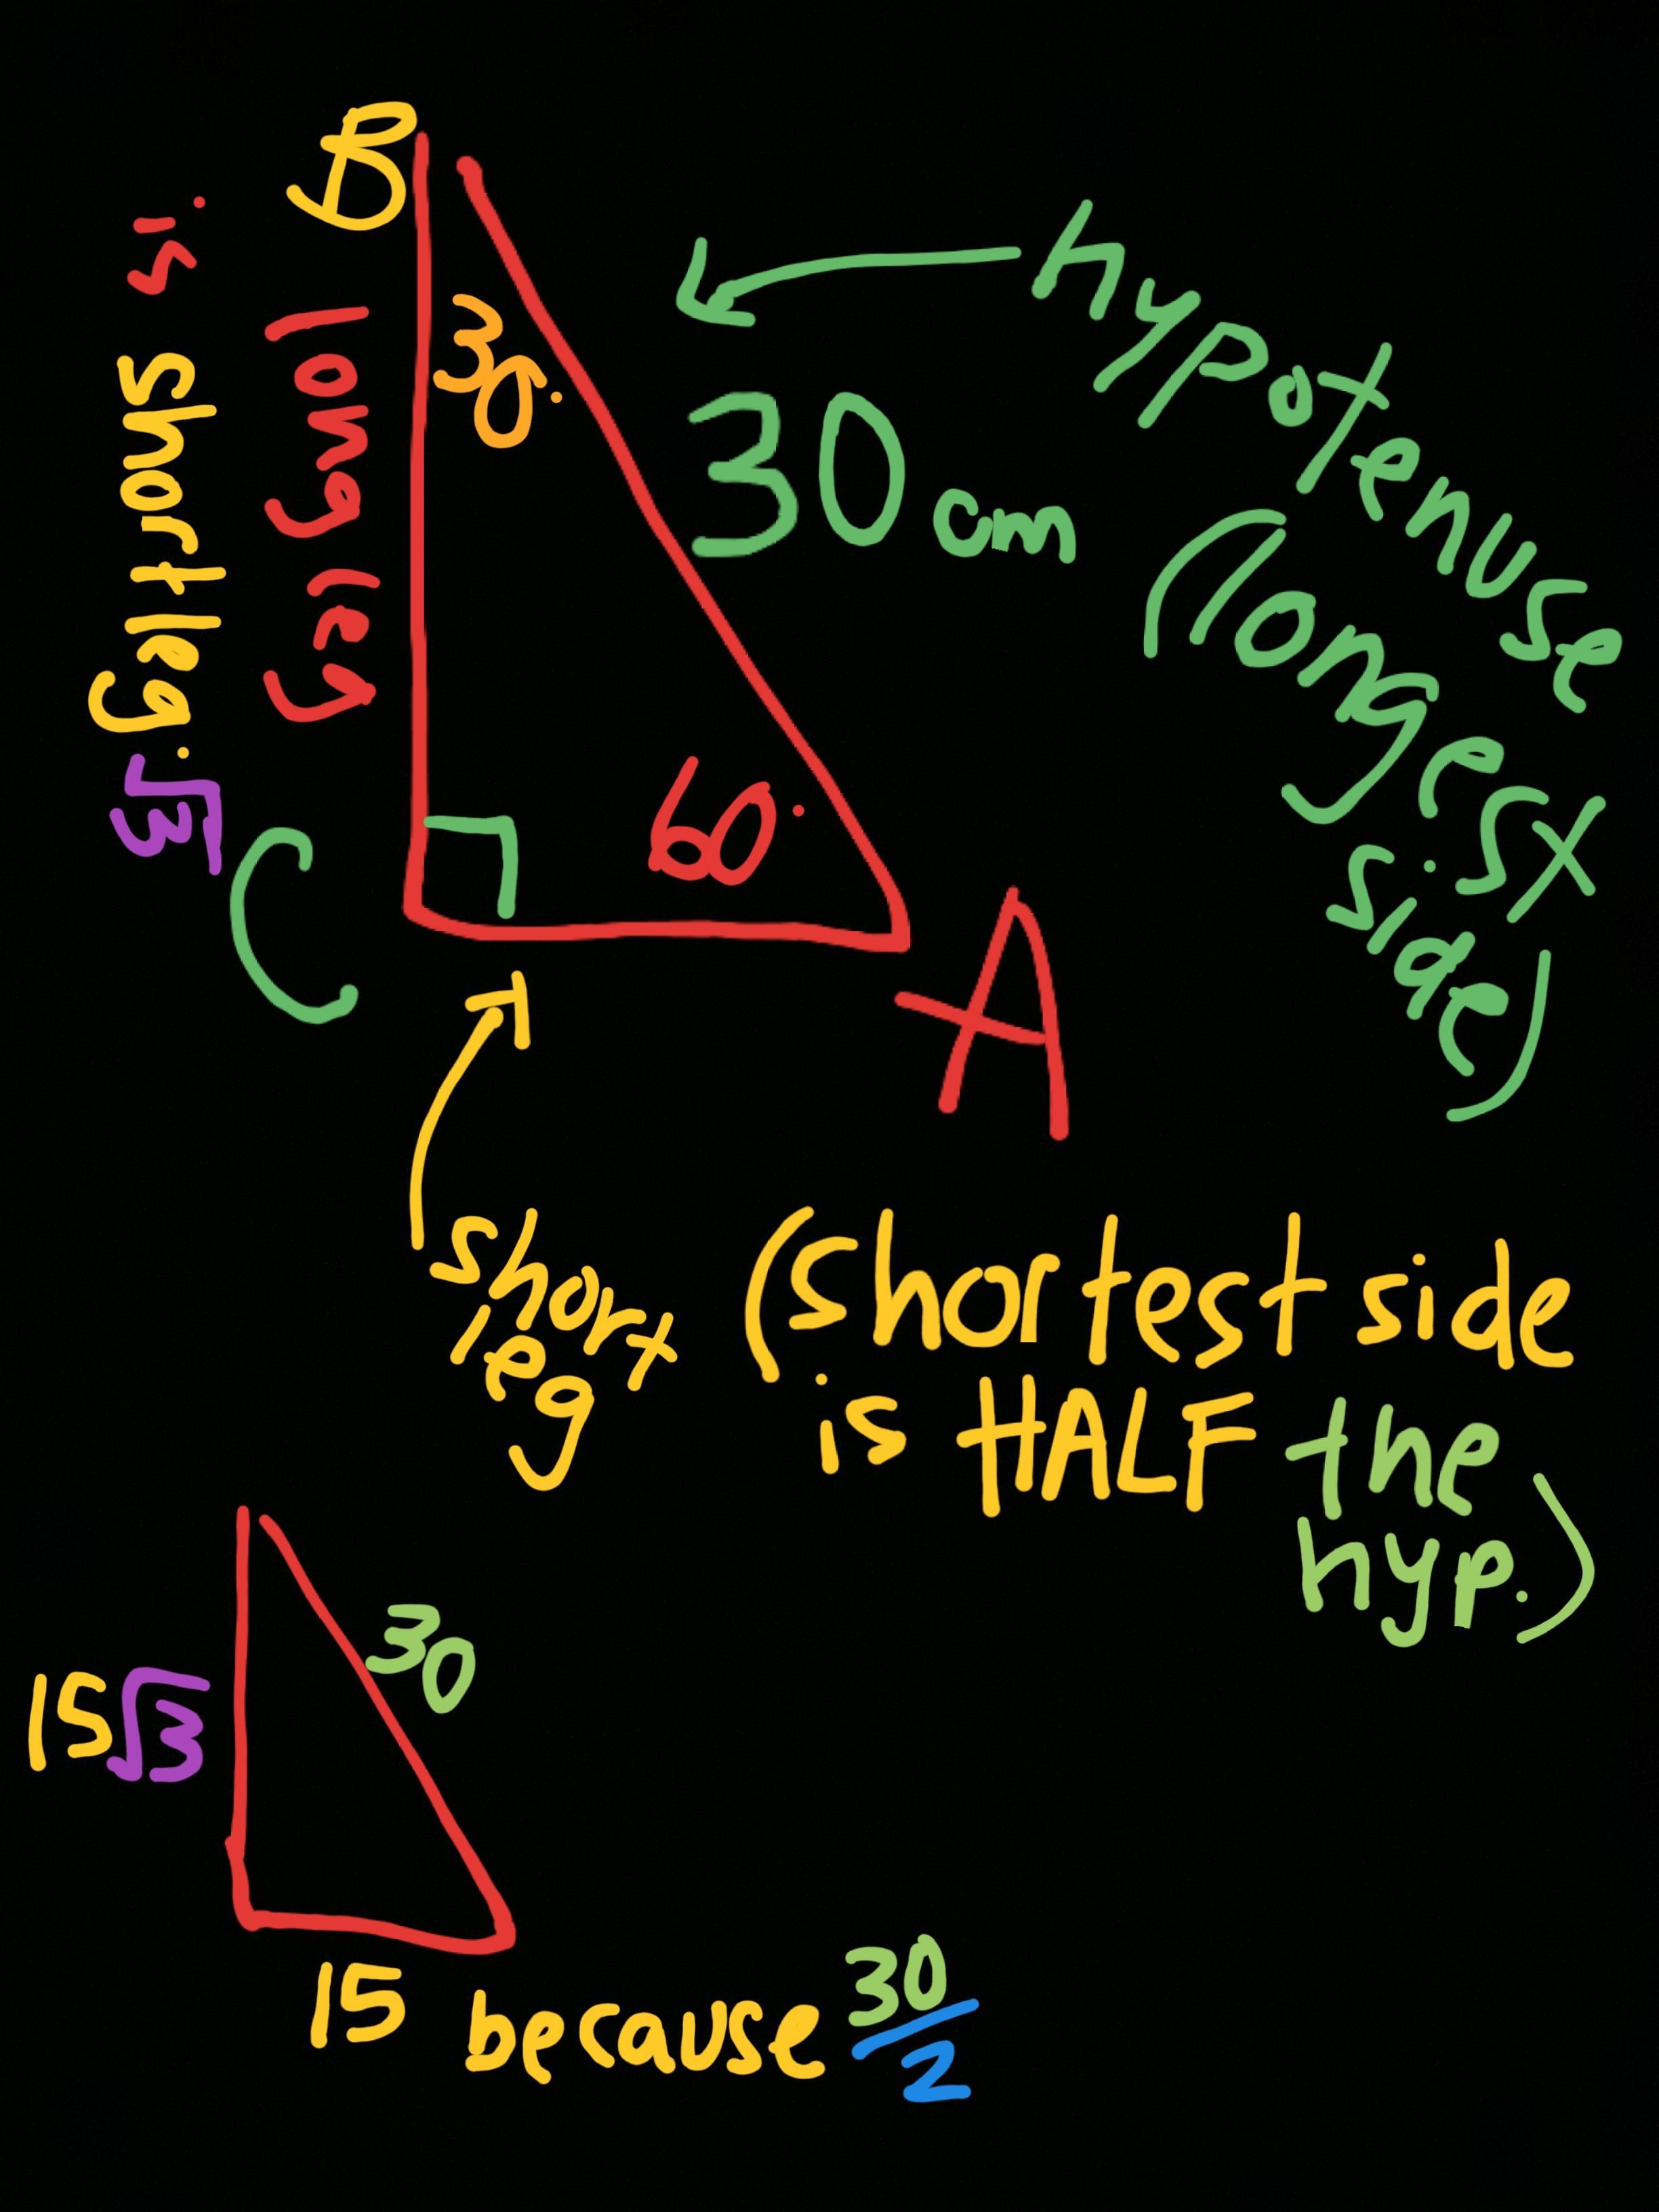 B
30°
hypotenuse
(longest
side)
30 cm
long leg
is short leg · √3
60°
C
A
short
leg
(Shortest side
is HALF the
hyp.)
30
15√3
15 because 30/2